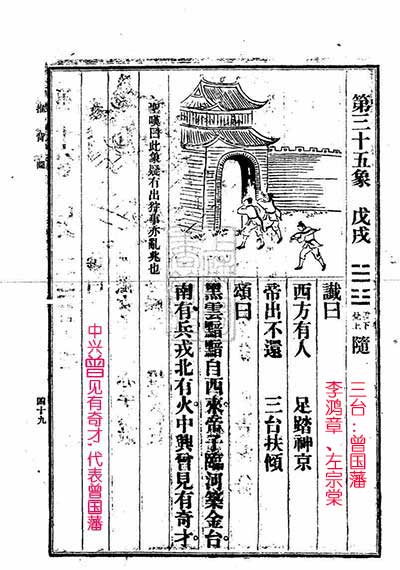 第三十五象 戊戌 震下 兌上 隨
三台:曾国藩
李鸿章、左宗棠
讖曰
西方有人 足踏神京
帝出不還 三台扶傾
頌曰
黑雲黯黯自西來。帝子臨河築金台。
南有兵戎北有火。中興曾見有奇才。
聖嘆曰此象疑有出狩事亦亂兆也
中兴曾见有奇才,代表曾国藩
推背圖
四十九